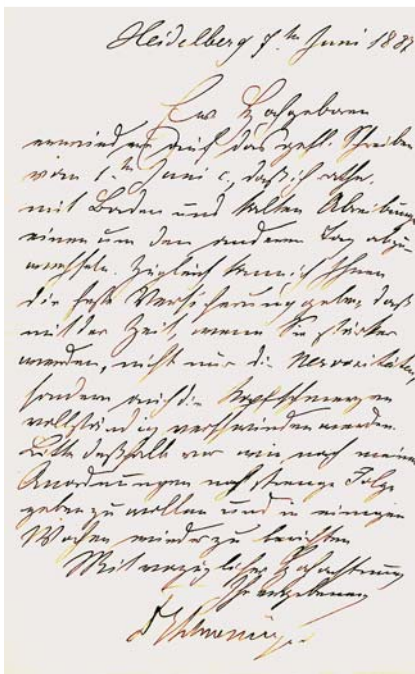 Heidelberg 7ten Juni 188
Ew Hochgeboren
erwiedere auf das gefl. Schreiben
vom 1. ten Juni c, daß ich rathe,
mit Baden und kalten Abreibungen
einen um den anderen Tag abzu-
wechseln. Zugleich kann ich Ihnen
die feste Versicherung geben, daß
mit der Zeit, wenn Sie stärker
werden, nicht nur die Nervositäten,
sondern auch die Kopfschmerzen
vollständig verschwinden werden.
Bitte deßhalb vor wie nach meinen
Anordnungen noch strenge Folge
geben zu wollen und in einigen
Wochen wieder zu berichten
Mit vorzüglicher Hochachtung
Ihr ergebener
Dr Schweninger